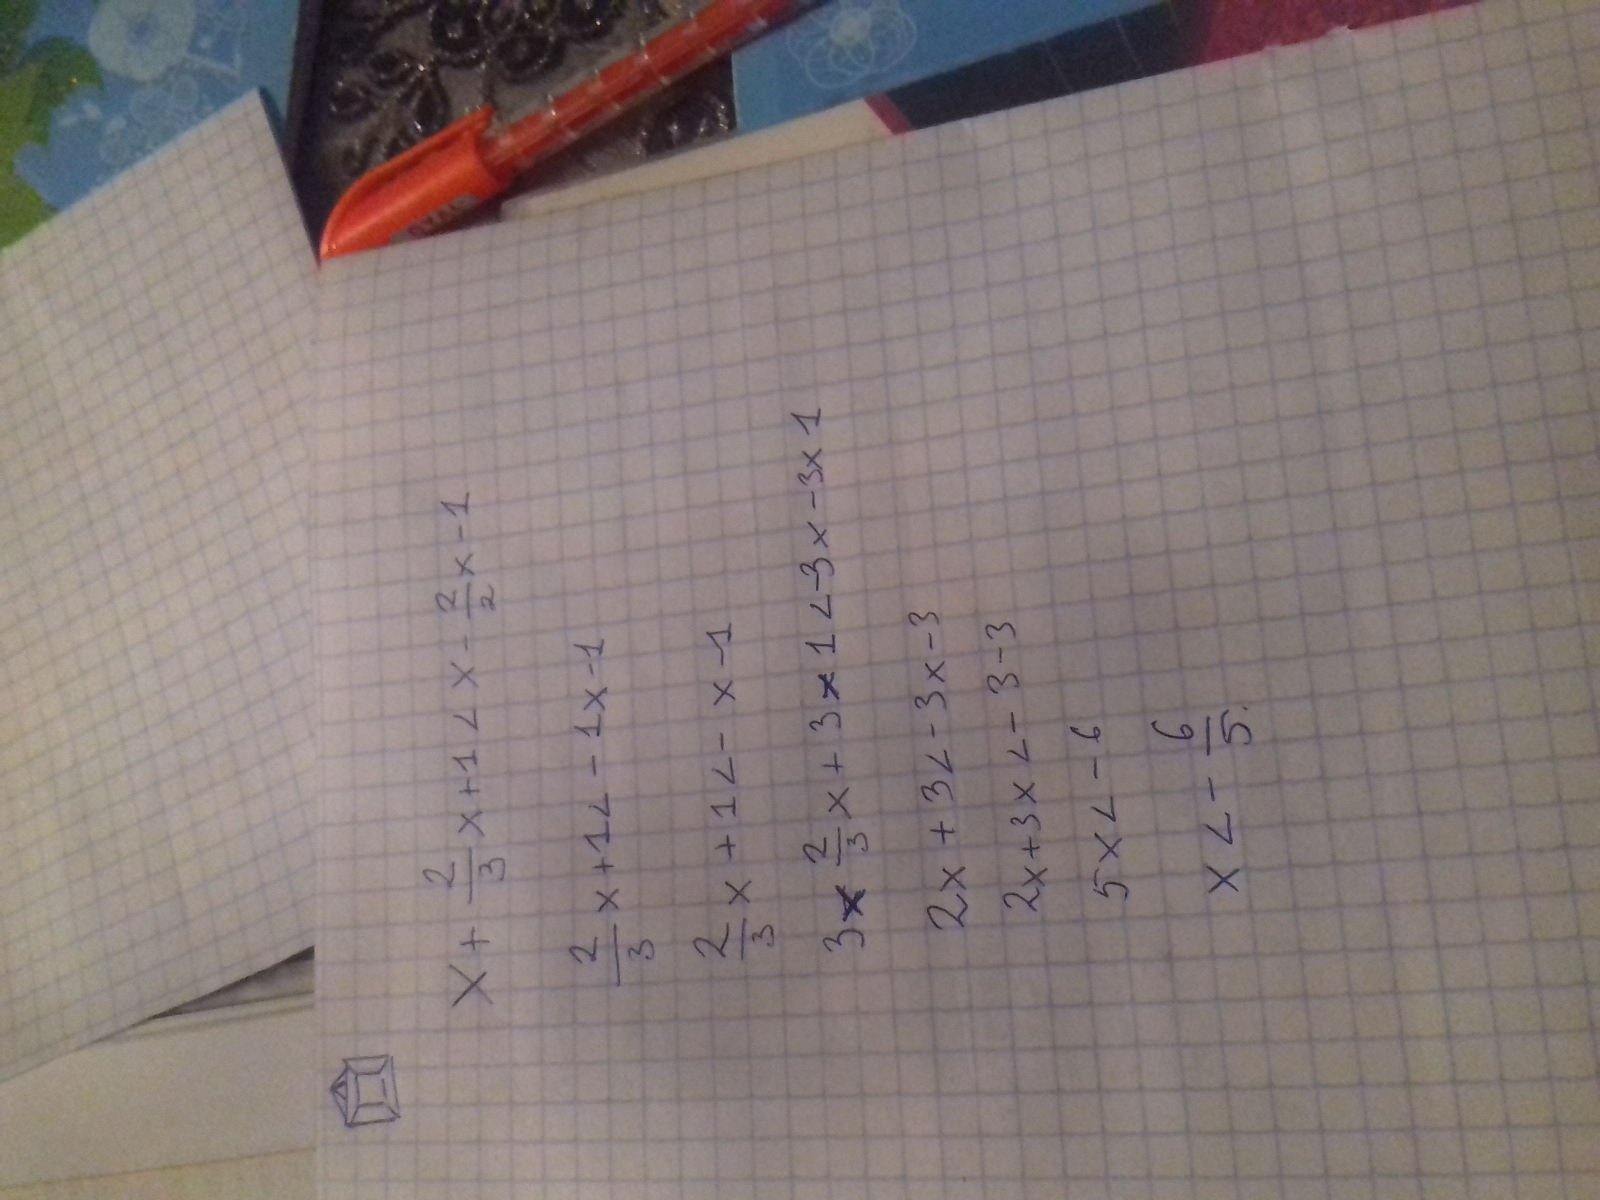 x + 2/3 x + 1 < x - 2/2 x - 1
2/3 x + 1 < - 1x - 1
2/3 x + 1 < - x - 1
3 x 2/3 x + 3 x 1 < -3x - 3x1
2x + 3 < - 3x - 3
2x + 3x < - 3 - 3
5x < - 6
x < - 6/5.